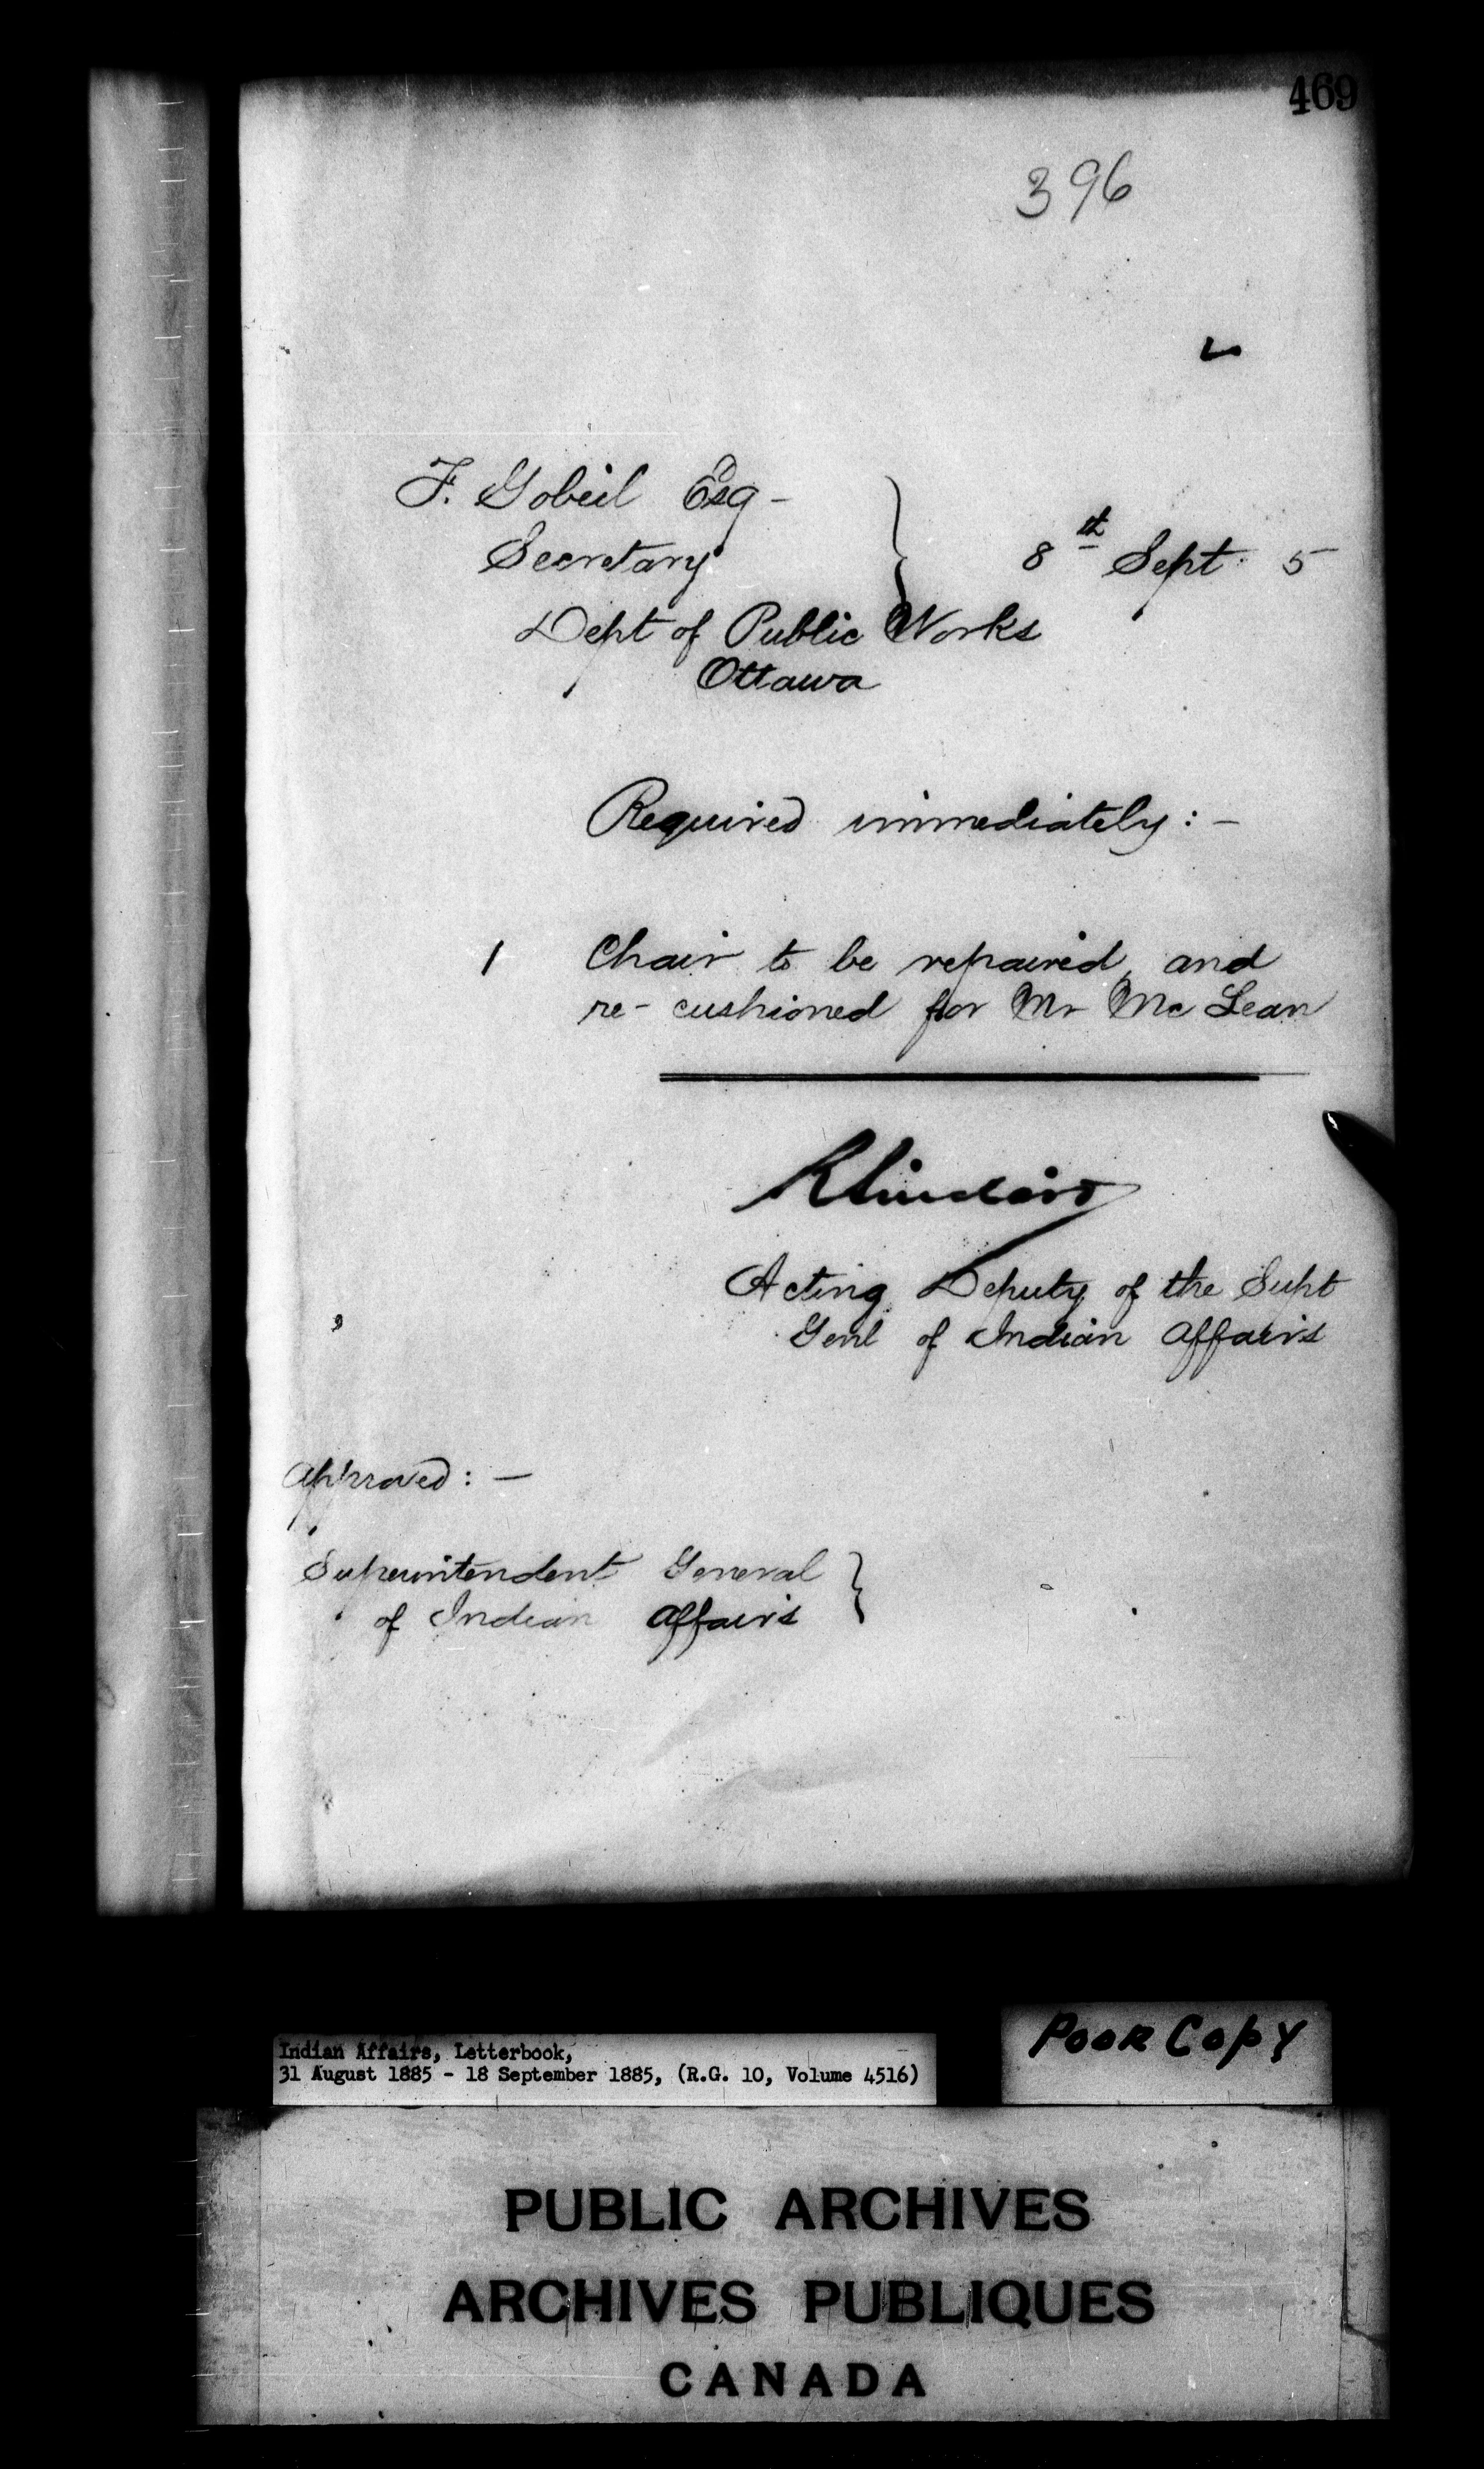 469
396
F. Gobeil Esq -
Secretary
8th Sept. 5
Dept of Public Works
Ottawa
Required immediately: -
1 Chair to be repaired, and
re- cushioned for Mr McLean
R Sinclair
Acting Deputy of the Supt
Genl of Indian Affairs
Approved: -
Superintendent General
of Indian Affairs
Indian Affairs, Letterbook,
31 August 1885 - 18 September 1885, (R.G. 10, Volume 4516)
Poor Copy
PUBLIC ARCHIVES
ARCHIVES PUBLIQUES
CANADA